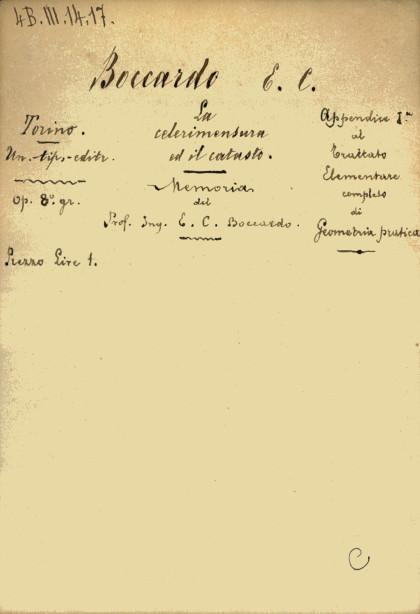 4B.III.14.17.
Boccardo E. C.
Torino.
Un.-tip.-editr.
Op. 8º. gr.
Prezzo Lire 1.
La
celerimensura
ed il catasto.
Memoria
del
Prof. Ing. E. C. Boccardo.
Appendice Iª
al
Trattato
Elementare
completo
di
Geometria pratica
C